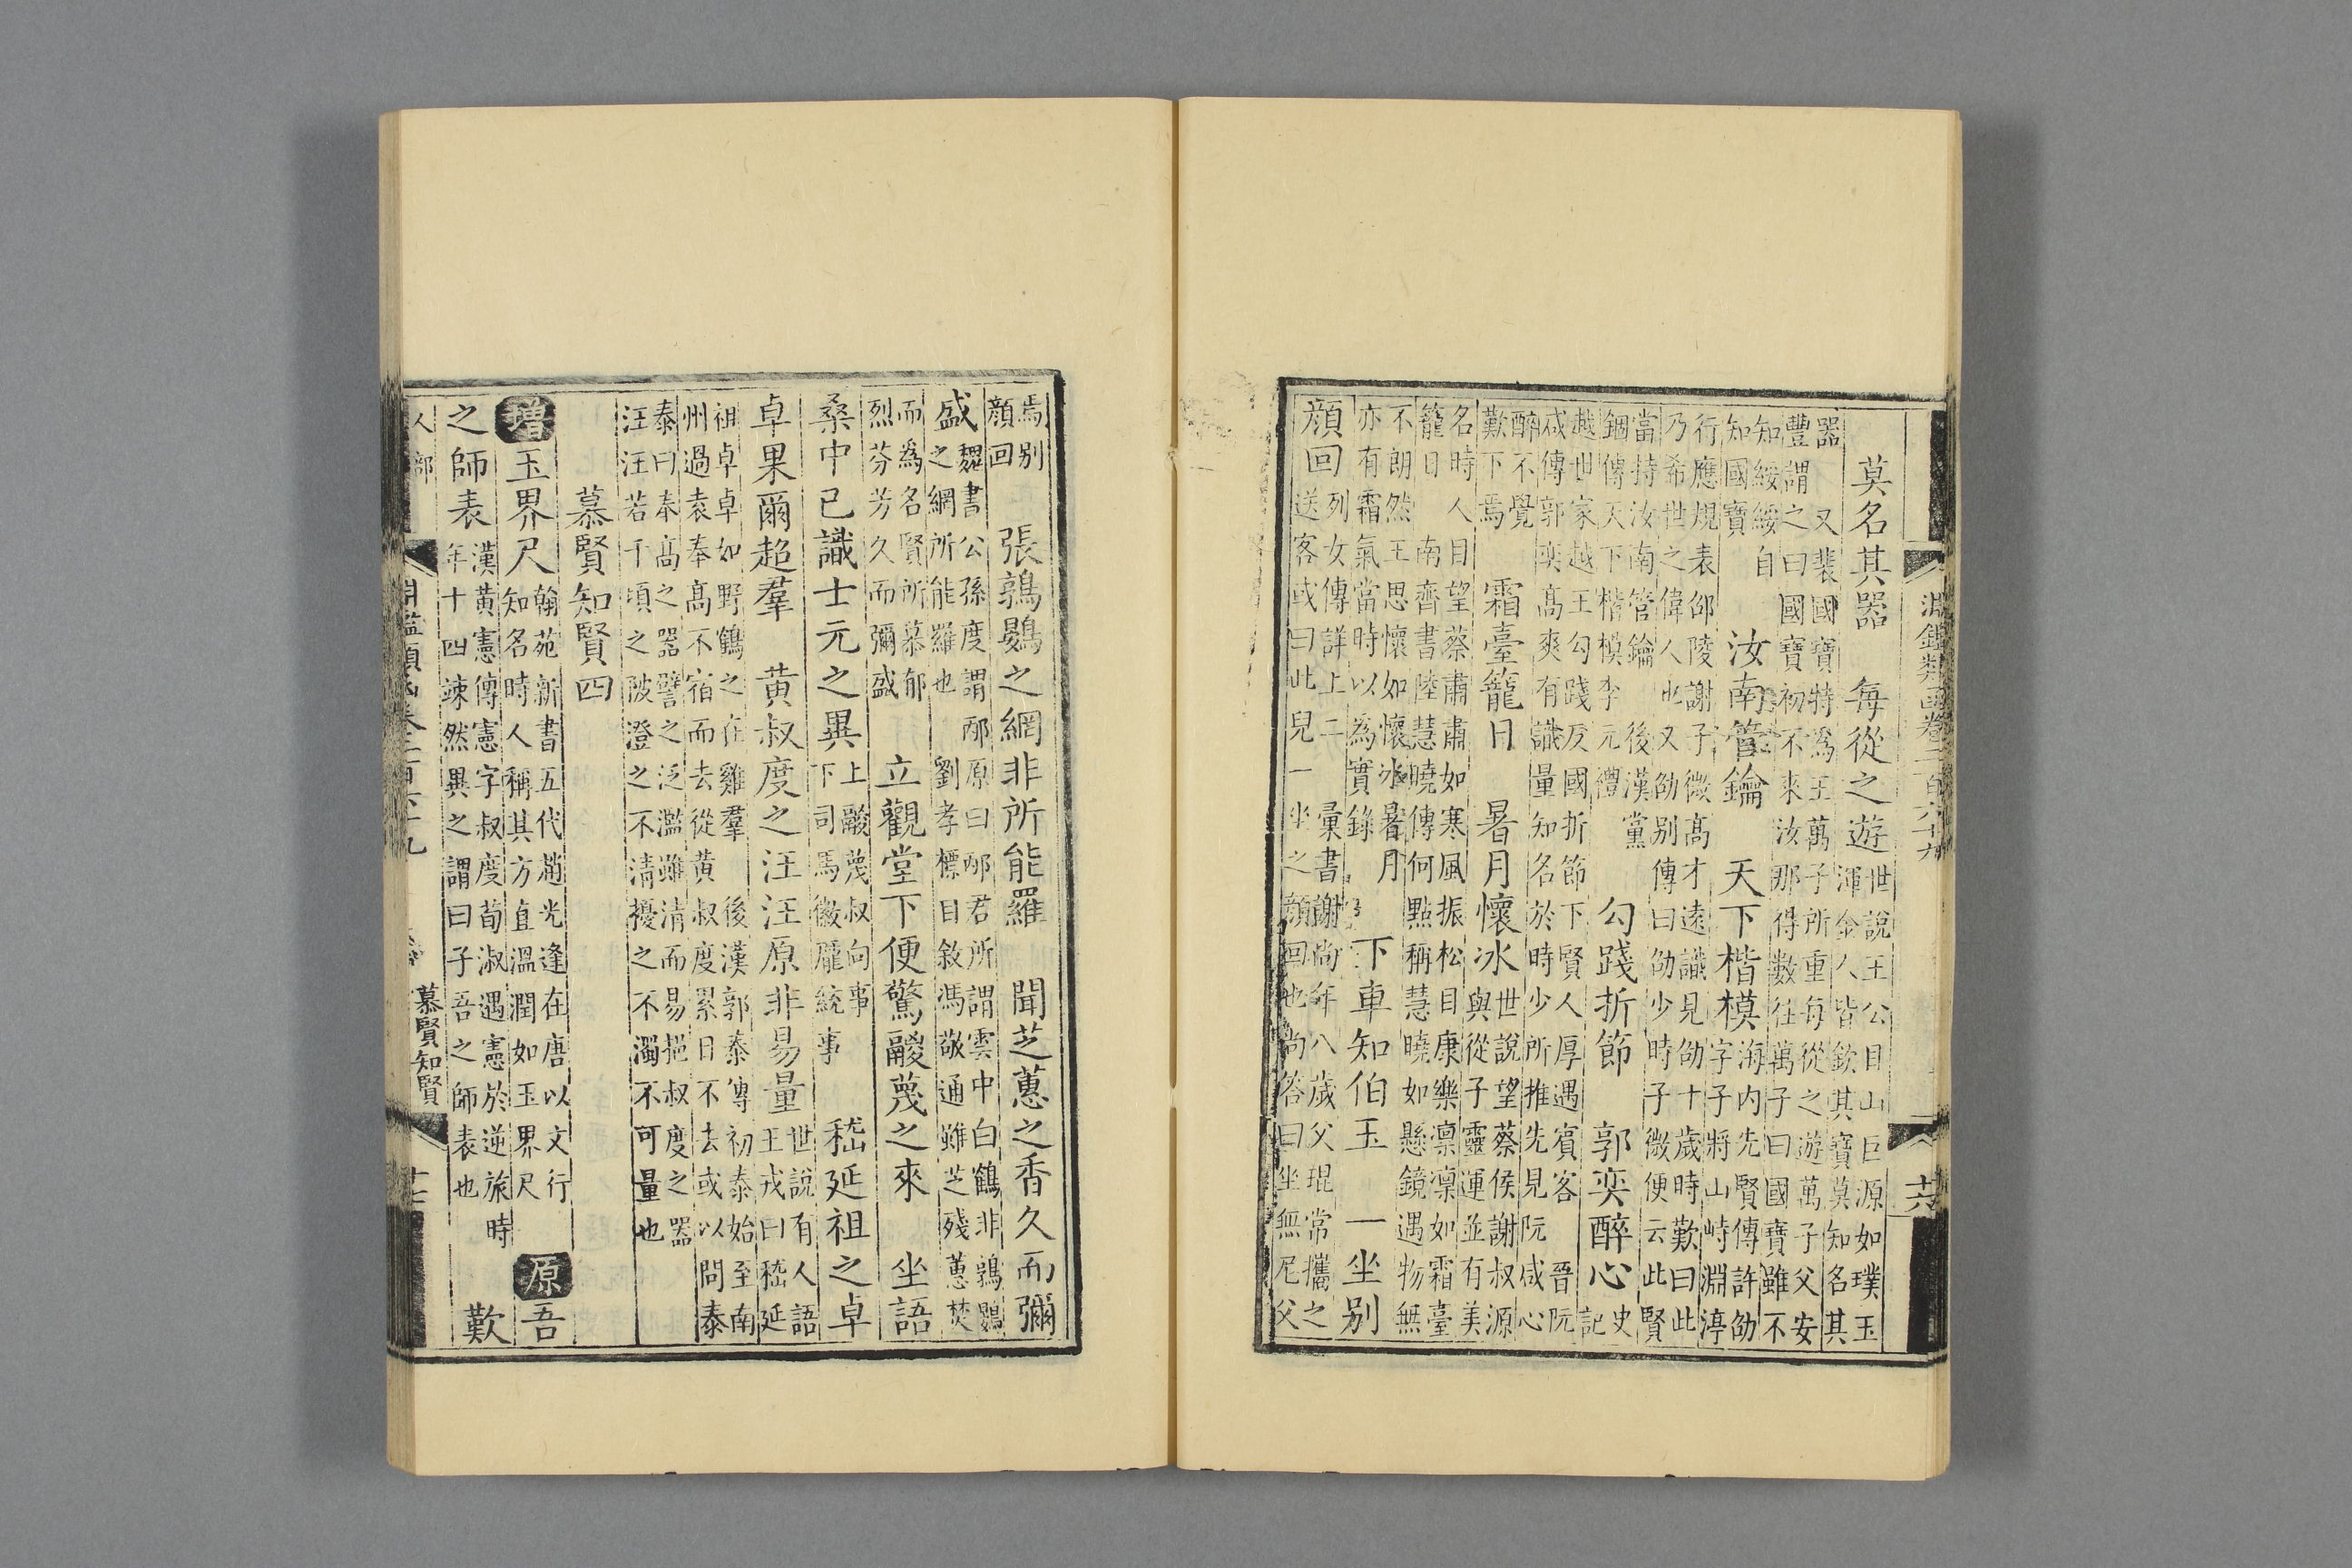 淵鑑類函卷二百六十九 廿六
莫名其器 每從之遊 世說王公目山巨源如璞玉
渾金人皆欽其寶莫知名其
器 又裴國寶特為王萬子所重每從之遊萬子父安
豐謂之曰國寶初不來汝那得數往萬子曰國寶雖不
知綏綏自
知國寶 汝南管鑰 天下楷模 海内先賢傳許劭
字子將山峙淵渟
行應規表邵陵謝子微高才遠識見劭十歲時歎曰此
乃希世之偉人也又劭别傳曰劭少時子微便云此賢
當持汝南管鑰 後漢黨
錮傳天下楷模李元禮 勾踐折節 郭奕醉心 史
記
越世家越王勾踐反國折節下賢人厚遇賓客 晉阮
咸傳郭奕高爽有識量知名於時少所推先見阮咸心
醉不覺
歎下焉 霜臺籠日 暑月懷冰 世說望蔡侯謝叔源
與從子靈運並有美
名時人目望蔡肅肅如寒風振松目康樂凛凛如霜臺
籠日 南齊書陸慧曉傳何點稱慧曉如懸鏡遇物無
不朗然王思懷如懷冰暑月
亦有霜氣當時以為實錄 下車知伯玉 一坐别
顔回 列女傳詳上二 彙書謝尚年八歲父琨常攜之
送客或曰此兒一坐之顔回也尚答曰坐無尼父
焉别
顔回 張鶉鷃之網非所能羅 聞芝蕙之香久而彌
盛 魏書公孫度謂邴原曰邴君所謂雲中白鶴非鶉鷃
之網所能羅也 劉孝標目敘馮敬通雖芝殘蕙焚
而為名賢所慕郁
烈芬芳久而彌盛 立觀堂下便驚鬷蔑之來 坐語
桑中已識士元之異 上鬷蔑叔向事
下司馬徽龐統事 嵇延祖之卓
卓果爾超羣 黄叔度之汪汪原非易量 世說有人語
王戎曰嵇延
祖卓卓如野鶴之在雞羣 後漢郭泰傳初泰始至南
州過袁奉高不宿而去從黄叔度累日不去或以問泰
泰曰奉高之器譬之泛濫雖清而易挹叔度之器
汪汪若千頃之陂澄之不清擾之不濁不可量也
慕賢知賢四
增 玉界尺 翰苑新書五代趙光逢在唐以文行
知名時人稱其方直溫潤如玉界尺 原 吾
之師表 漢黄憲傳憲字叔度荀淑遇憲於逆旅時
年十四竦然異之謂曰子吾之師表也 歎
人部 淵鑑類函卷二百六十九 慕賢知賢 廿七